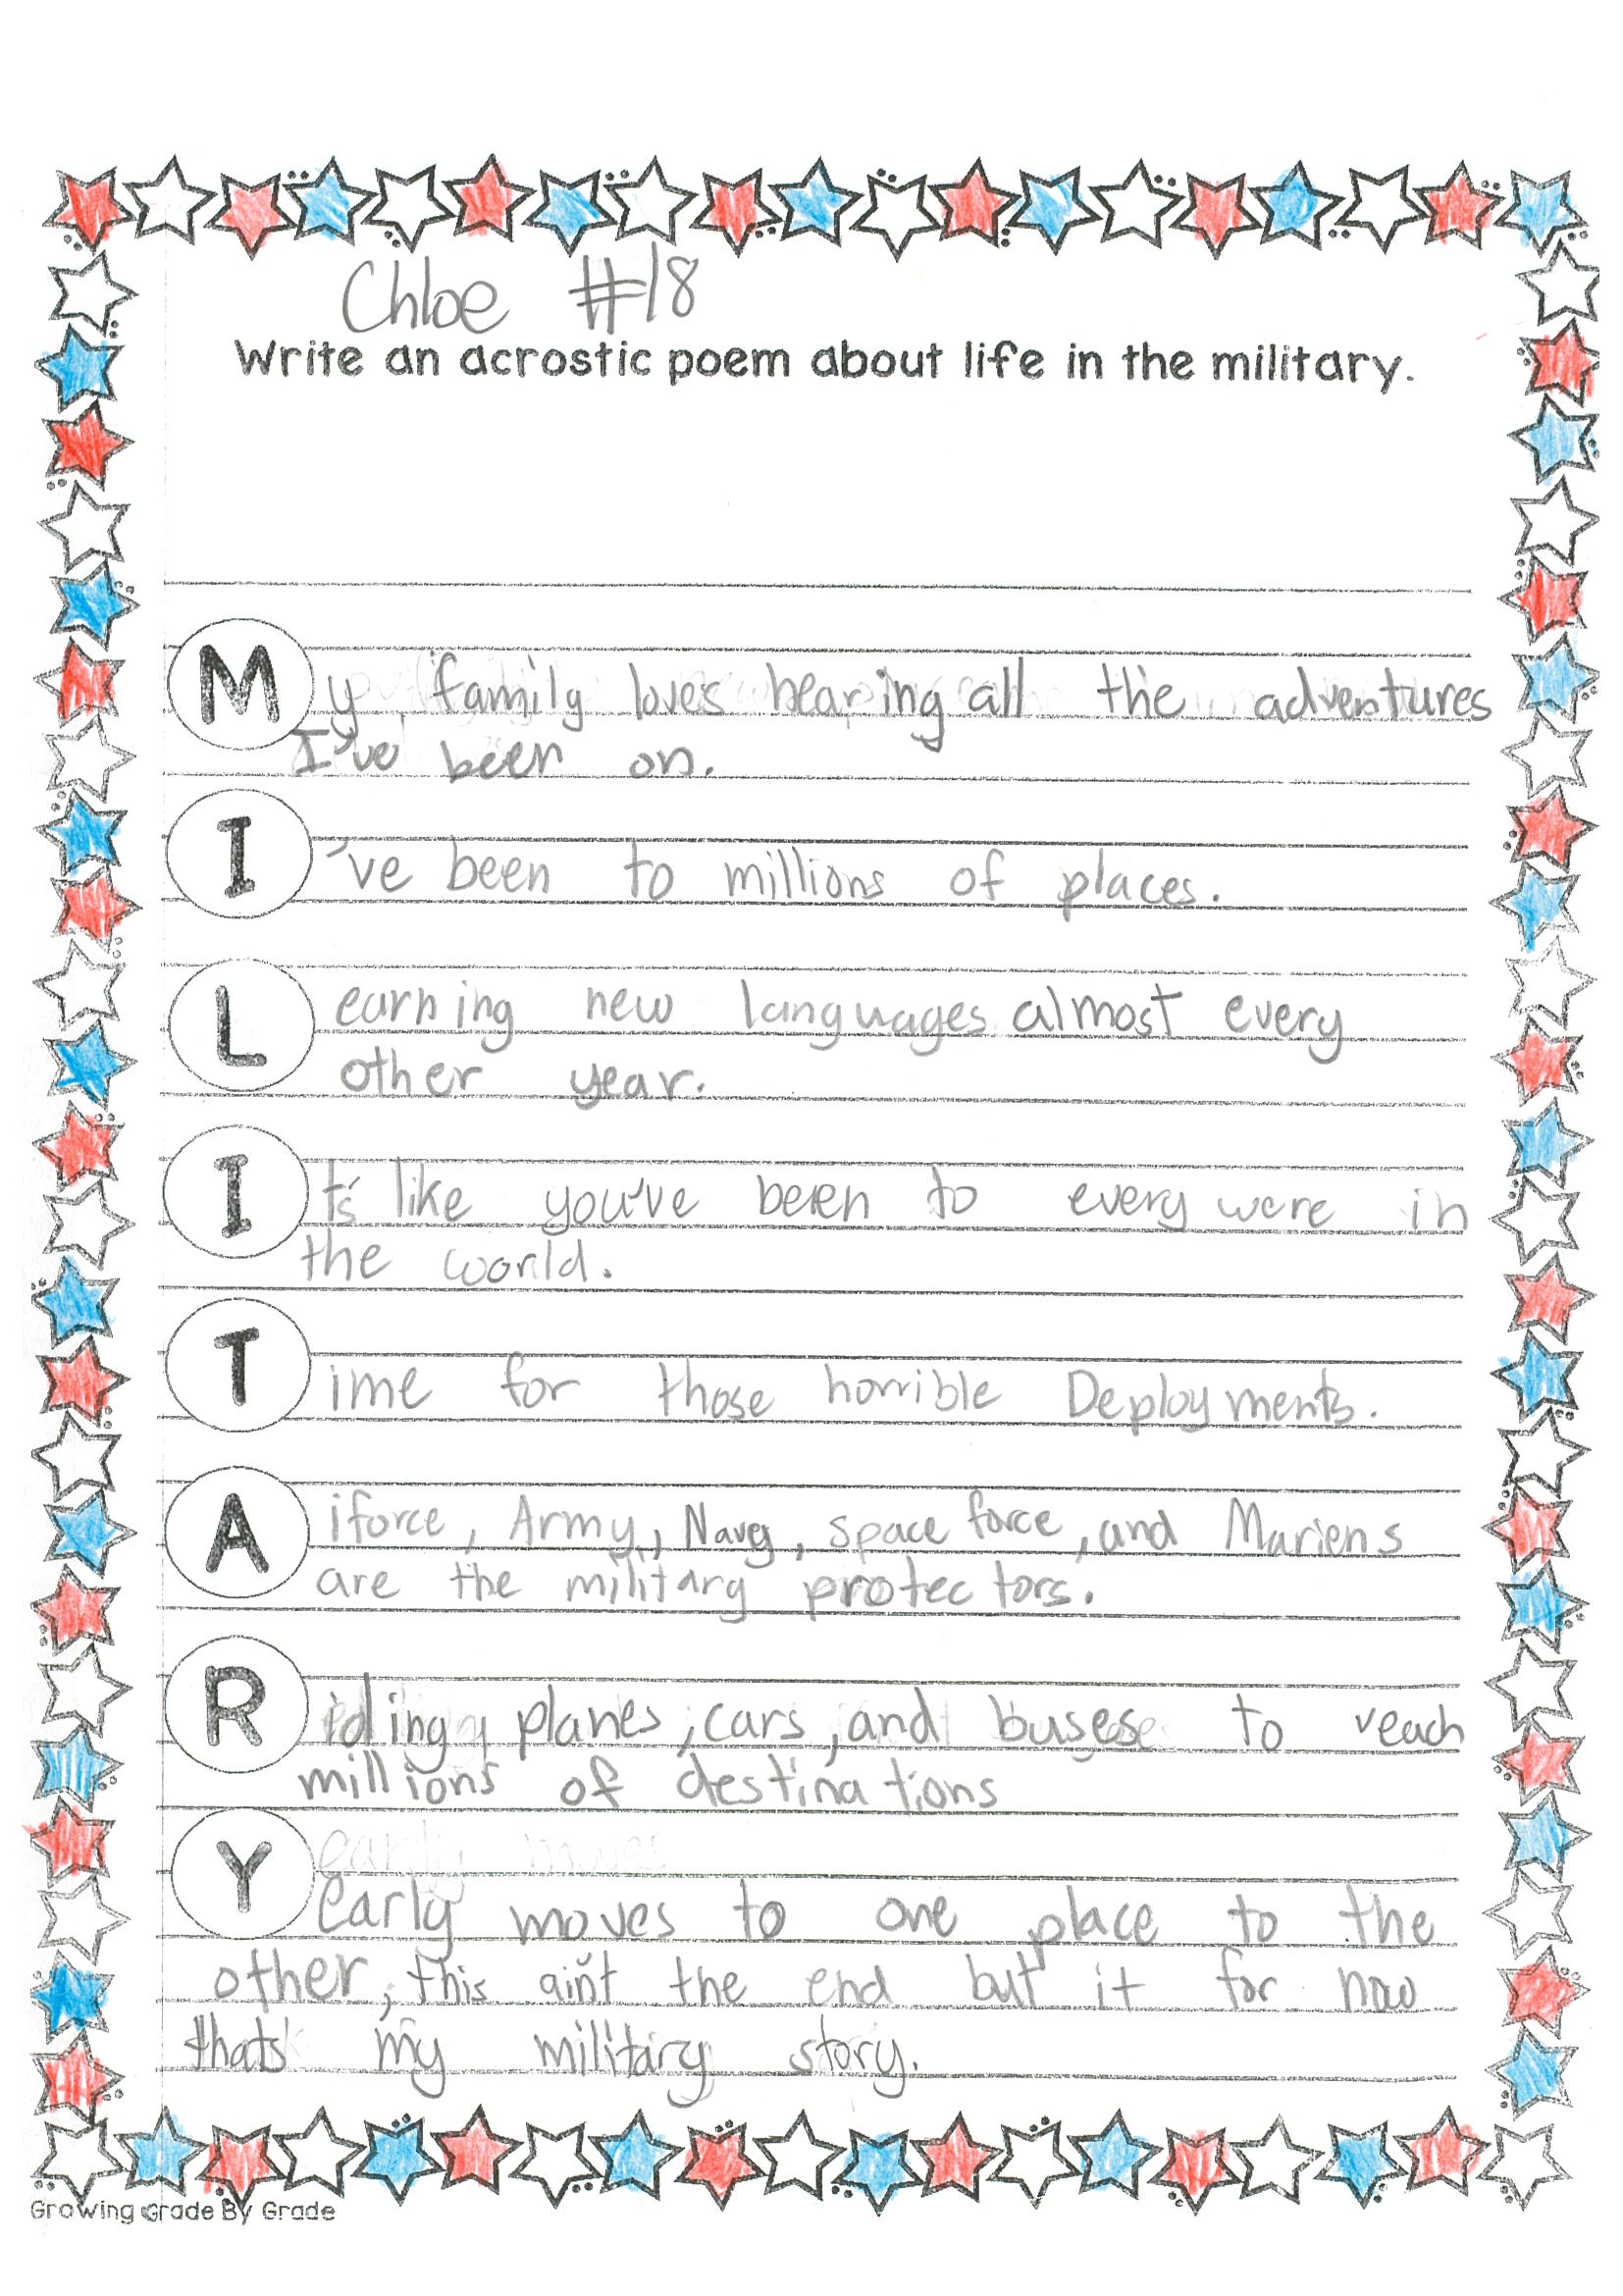 Chloe #18
Write an acrostic poem about life in the military.
My family loves hearing all the adventures
I've been on.
I've been to millions of places.
Learning new languages almost every
other year.
It's like you've been to every were in
the world.
Time for those horrible Deployments.
Aiforce, Army, Navy, space force, and Mariens
are the military protectors.
Riding planes, cars, and buses to reach
millions of destinations
Yearly moves to one place to the
other, this ain't the end but it for now
thats my military story.
Growing Grade By Grade